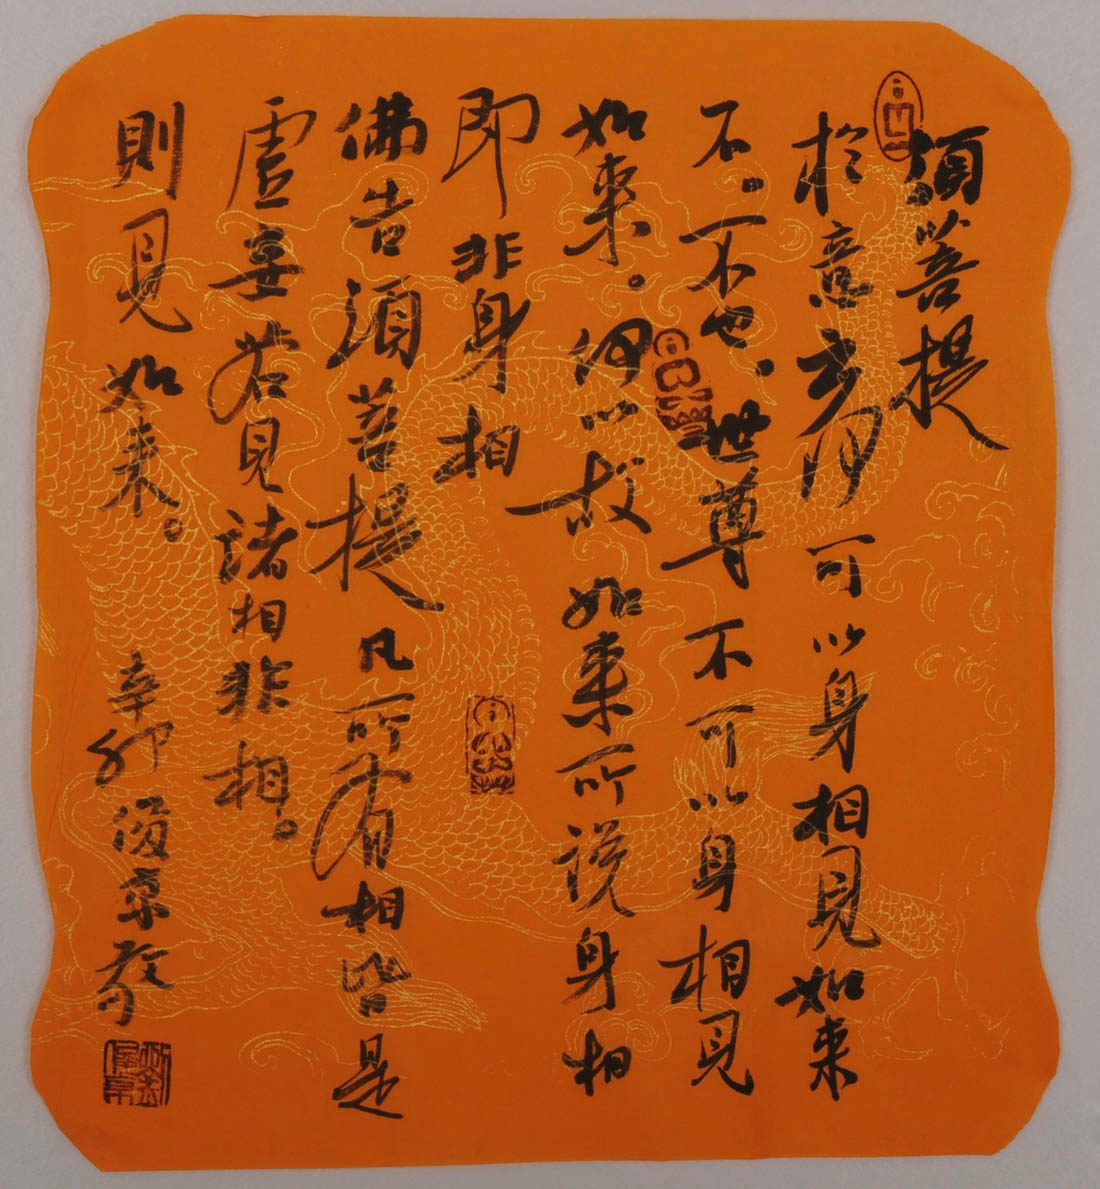 須菩提
於意云何可以身相見如来
不。不也、世尊不可以身相見
如来。何以故如来所說身相
即非身相
佛告須菩提凡所有相皆是
虛妄若見諸相非相。
則見如来。辛卯俊京敬